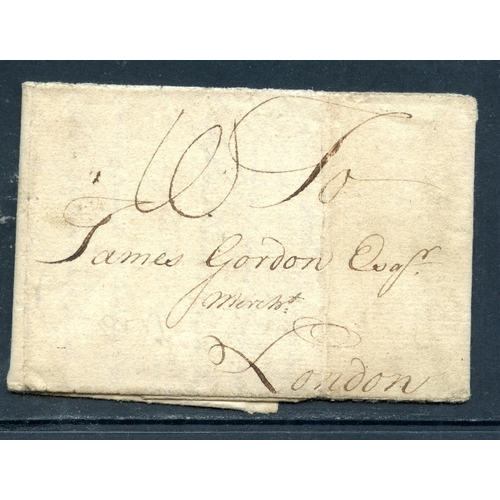 To
James Gordon Esqr.
Mercht.
London